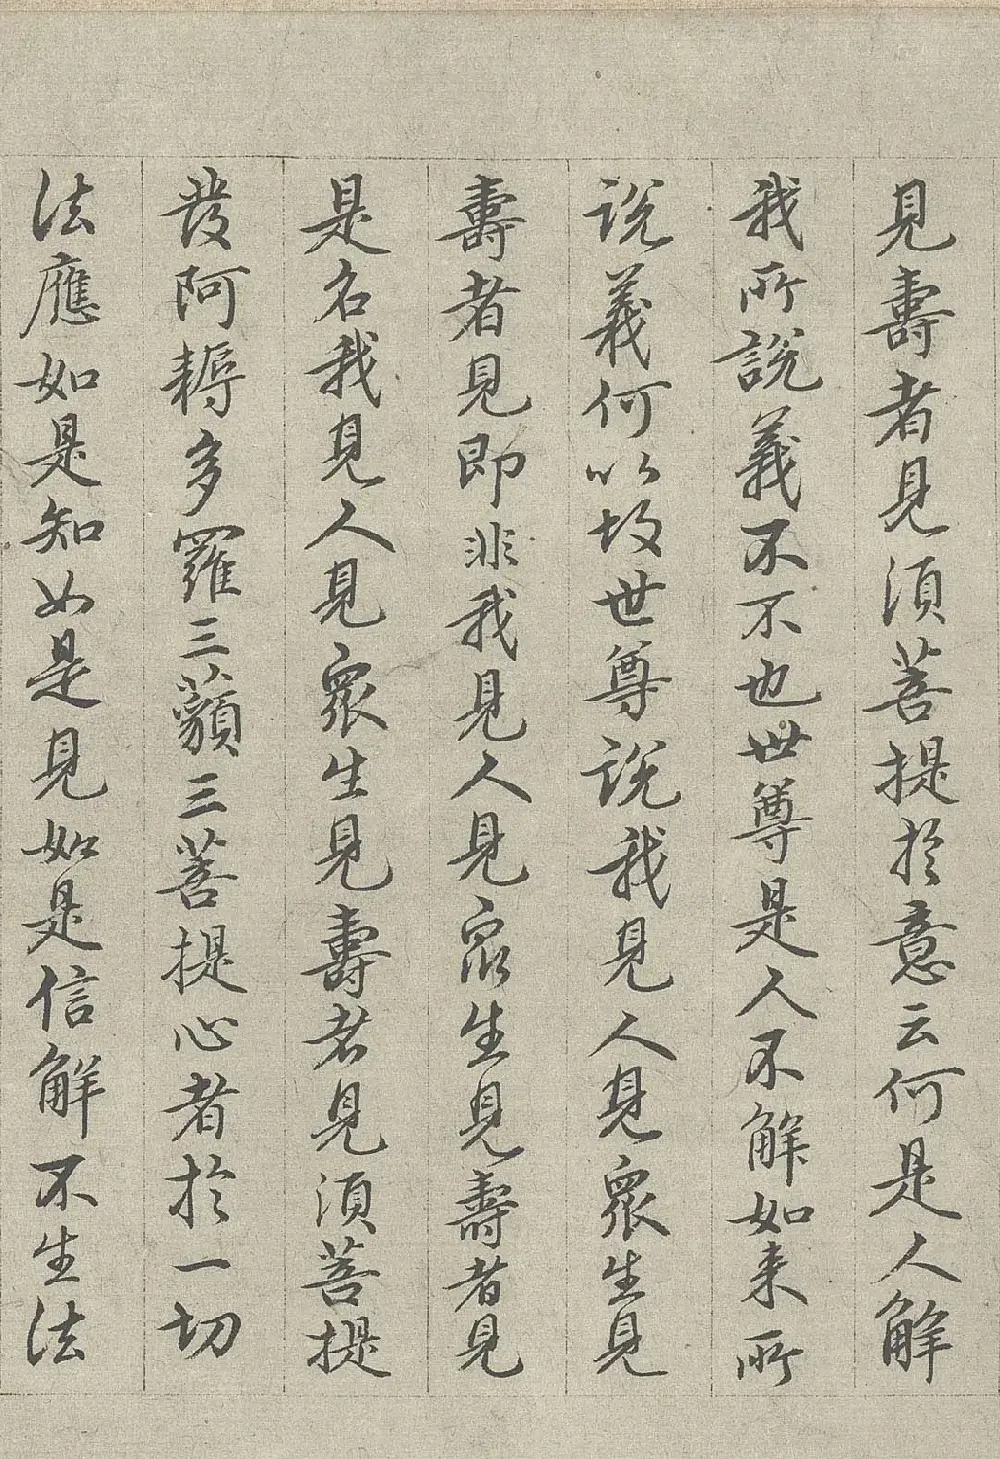 見壽者見須菩提於意云何是人解
我所說義不不也世尊是人不解如来所
說義何以故世尊說我見人見眾生見
壽者見即非我見人見眾生見壽者見
是名我見人見眾生見壽者見須菩提
發阿耨多羅三藐三菩提心者於一切
法應如是知如是見如是信解不生法